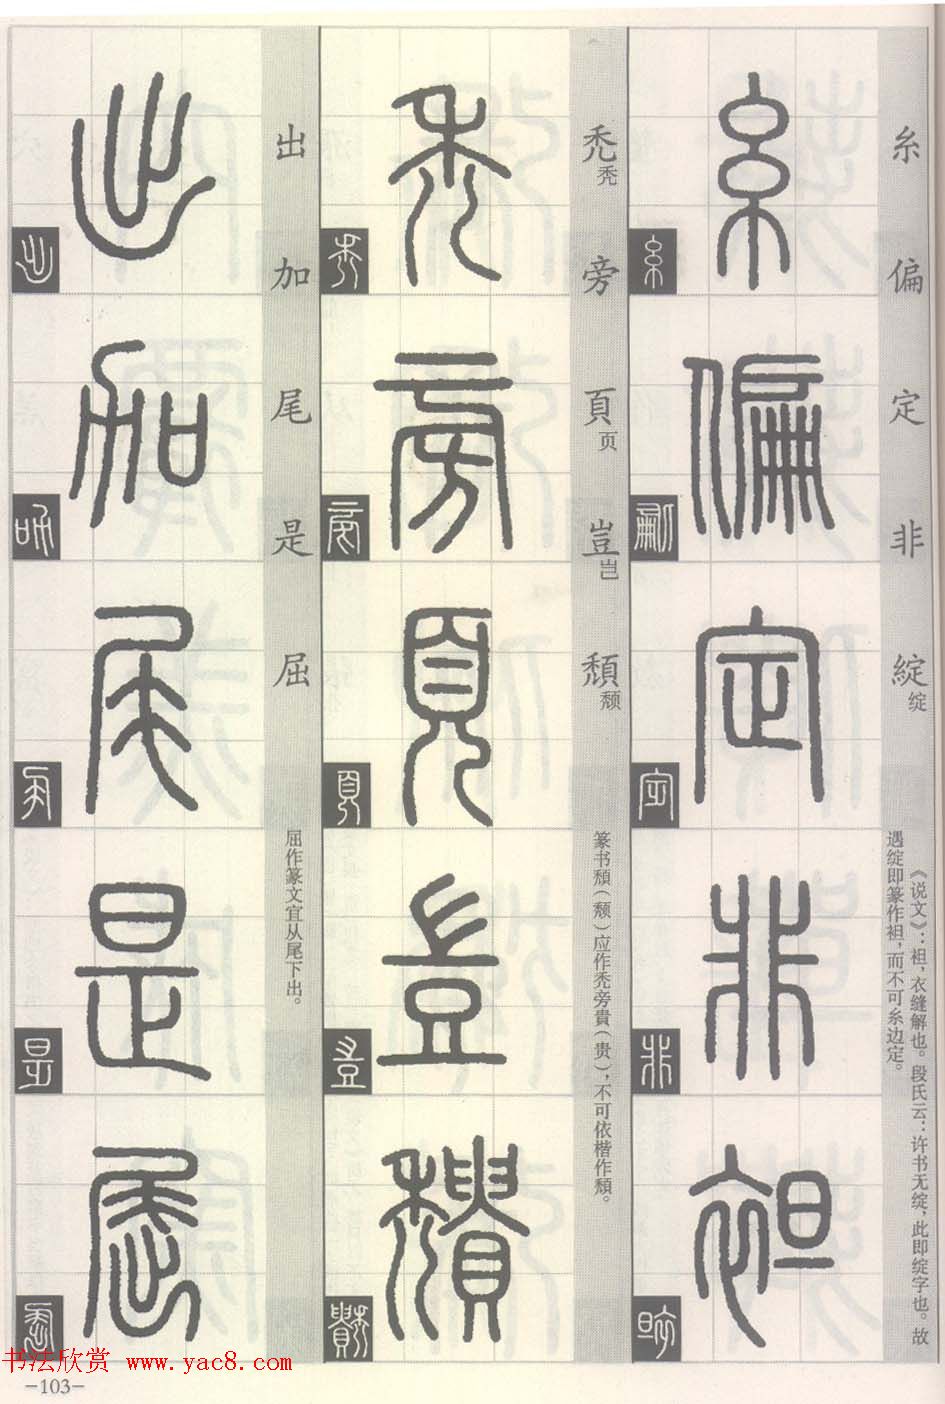 糸偏定非綻绽
《说文》：袒，衣缝解也。段氏云：许书无绽，此即绽字也。故
遇绽即篆作袒，而不可糸边定。
糸
偏
定
非
袒
禿秃旁頁页豈岂頹颓
篆书頹（颓）应作秃旁貴（贵），不可依楷作頹。
禿
旁
頁
豈
穨
出加尾是屈
屈作篆文宜从尾下出。
出
加
尾
是
屈
书法欣赏 www.yac8.com
-103-